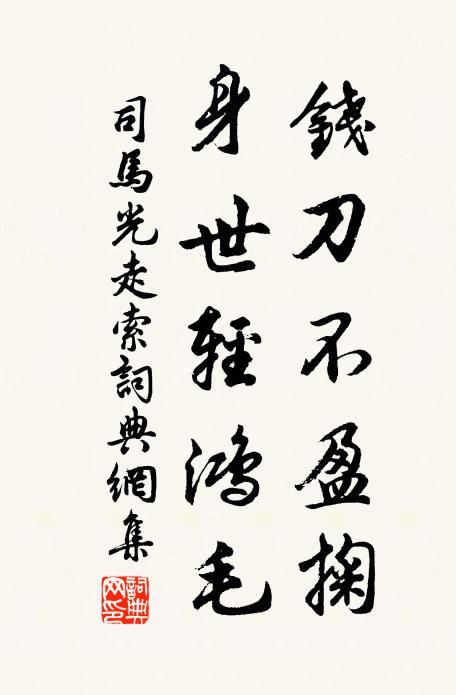 錢刀不盈掬
身世輕鴻毛
司馬光走索詞典網集
詞典
网印